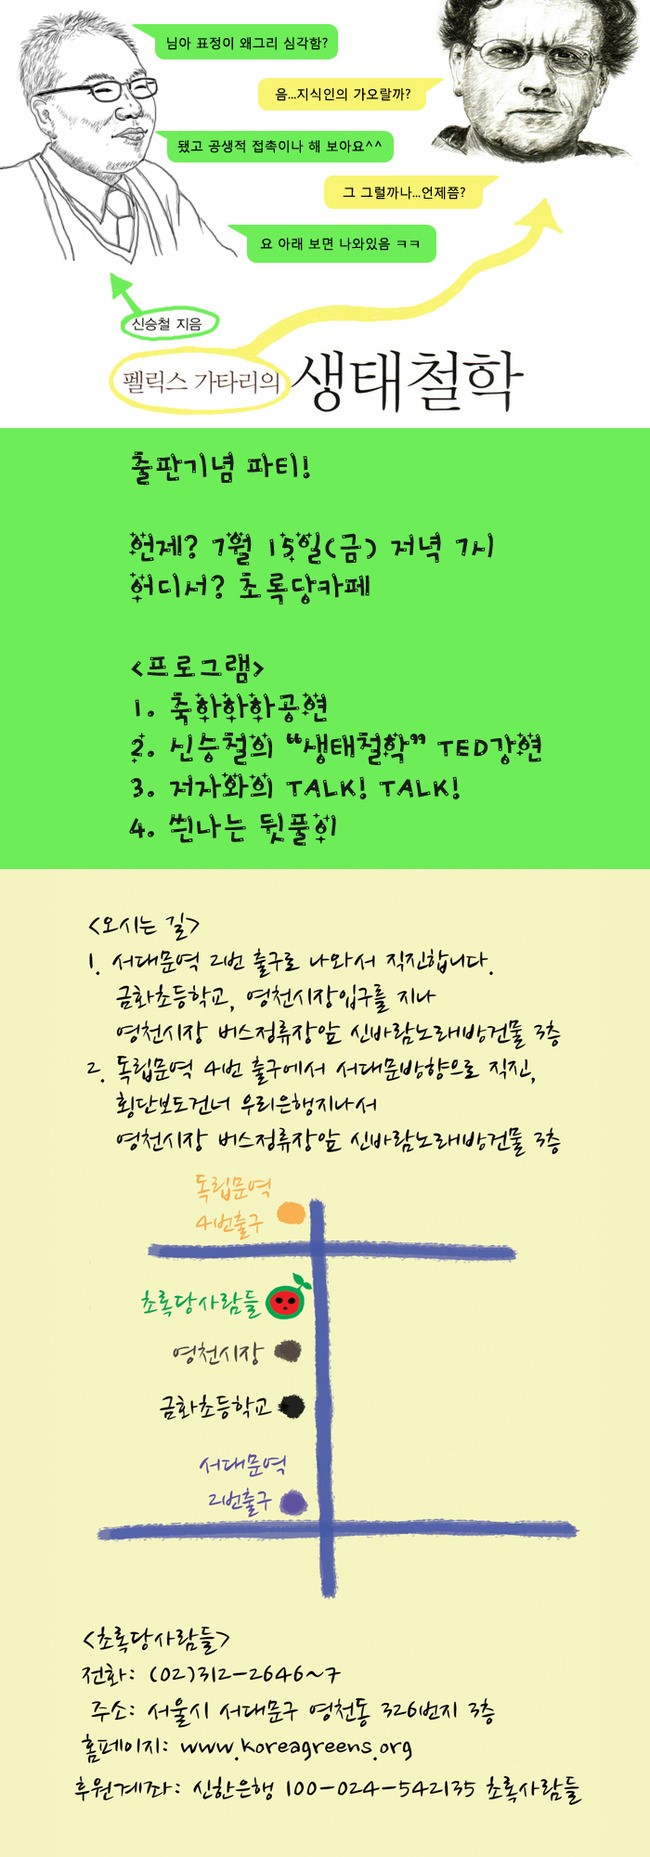 님아 표정이 왜그리 심각함?
음...지식인의 가오랄까?
됐고 공생적 접촉이나 해 보아요^^
그 그럴까나...언제쯤?
요 아래 보면 나와있음 ㅋㅋ
신승철 지음
펠릭스 가타리의 생태철학
출판기념 파티!
언제? 7월 15일(금) 저녁 7시
어디서? 초록당카페
<프로그램>
1. 축하하하공연
2. 신승철의 “생태철학” TED강연
3. 저자와의 TALK! TALK!
4. 씐나는 뒷풀이
<오시는 길>
1. 서대문역 2번 출구로 나와서 직진합니다.
금화초등학교, 영천시장입구를 지나
영천시장 버스정류장앞 신바람노래방건물 3층
2. 독립문역 4번 출구에서 서대문방향으로 직진,
횡단보도건너 우리은행지나서
영천시장 버스정류장앞 신바람노래방건물 3층
독립문역
4번출구
초록당사람들
영천시장
금화초등학교
서대문역
2번출구
<초록당사람들>
전화: (02)312-2646~7
주소: 서울시 서대문구 영천동 326번지 3층
홈페이지: www.koreagreens.org
후원계좌: 신한은행 100-024-542135 초록사람들